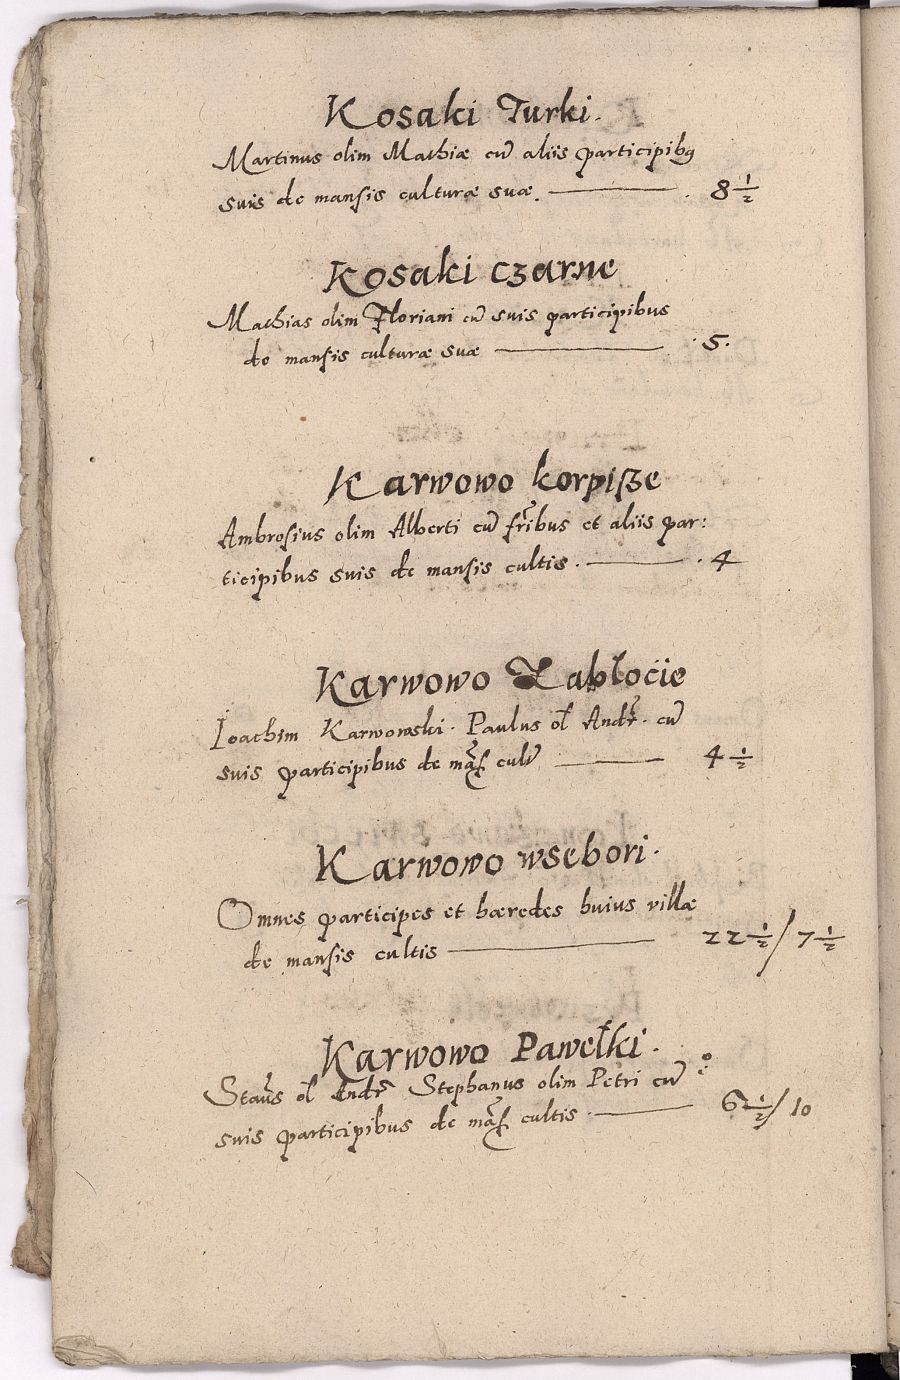 Kosaki Turki.
Martinus olim Mathiæ cũ aliis participibꝰ
suis de mansis culturæ suæ. — . 8 1/2
Kosaki czarne
Mathias olim Floriani cũ suis participibus
de mansis culturæ suæ — . 5.
Karwowo korpiβe
Ambrosius olim Alberti cũ fr̃ibus et aliis par:
ticipibus suis de mansis cultis. — . 4
Karwowo Zablocie
Ioachim Karwowski. Paulus ol̃ Andr̃. cũ
suis participibus de mãs cult̃ — 4 1/2
Karwowo wsebori.
Omnes participes et hæredes huius villæ
de mansis cultis — 22 1/2 / 7 1/2
Karwowo Pawełki.
Stãus ol̃ Andr̃ Stephanus olim Petri cũ
suis participibus de mãs cultis. — 6 1/2 / 10